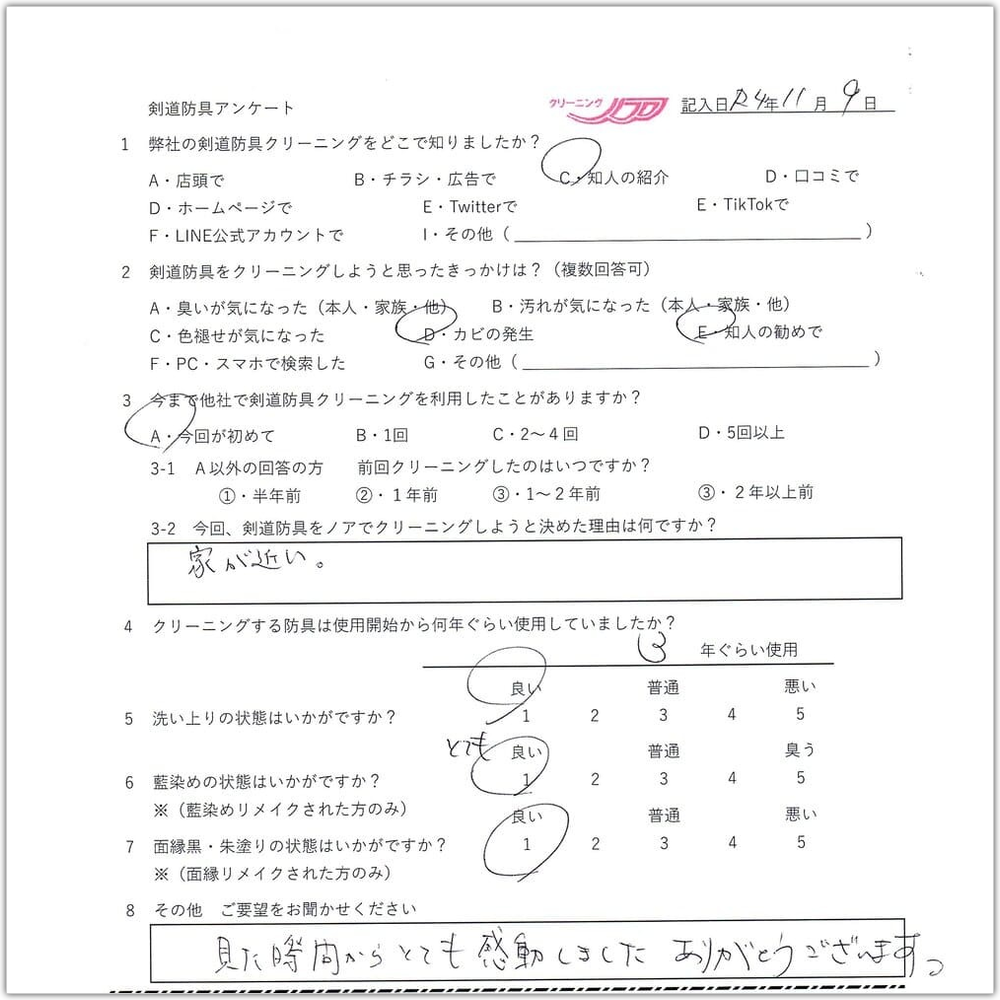 剣道防具アンケート クリーニング ノア 記入日 R4年11月9日
1 弊社の剣道防具クリーニングをどこで知りましたか？
A・店頭で B・チラシ・広告で C・知人の紹介 D・口コミで
D・ホームページで E・Twitterで E・TikTokで
F・LINE公式アカウントで I・その他（ ）
2 剣道防具をクリーニングしようと思ったきっかけは？（複数回答可）
A・臭いが気になった（本人・家族・他） B・汚れが気になった（本人・家族・他）
C・色褪せが気になった D・カビの発生 E・知人の勧めで
F・PC・スマホで検索した G・その他（ ）
3 今まで他社で剣道防具クリーニングを利用したことがありますか？
A・今回が初めて B・1回 C・2～4回 D・5回以上
3-1 A以外の回答の方 前回クリーニングしたのはいつですか？
①・半年前 ②・1年前 ③・1～2年前 ③・2年以上前
3-2 今回、剣道防具をノアでクリーニングしようと決めた理由は何ですか？
家が近い。
4 クリーニングする防具は使用開始から何年ぐらい使用していましたか？
3 年ぐらい使用
良い 普通 悪い
5 洗い上りの状態はいかがですか？ 1 2 3 4 5
とても 良い 普通 臭う
6 藍染めの状態はいかがですか？ 1 2 3 4 5
※（藍染めリメイクされた方のみ） 良い 普通 悪い
7 面縁黒・朱塗りの状態はいかがですか？ 1 2 3 4 5
※（面縁リメイクされた方のみ）
8 その他 ご要望をお聞かせください
見た瞬間からとても感動しました ありがとうございます。